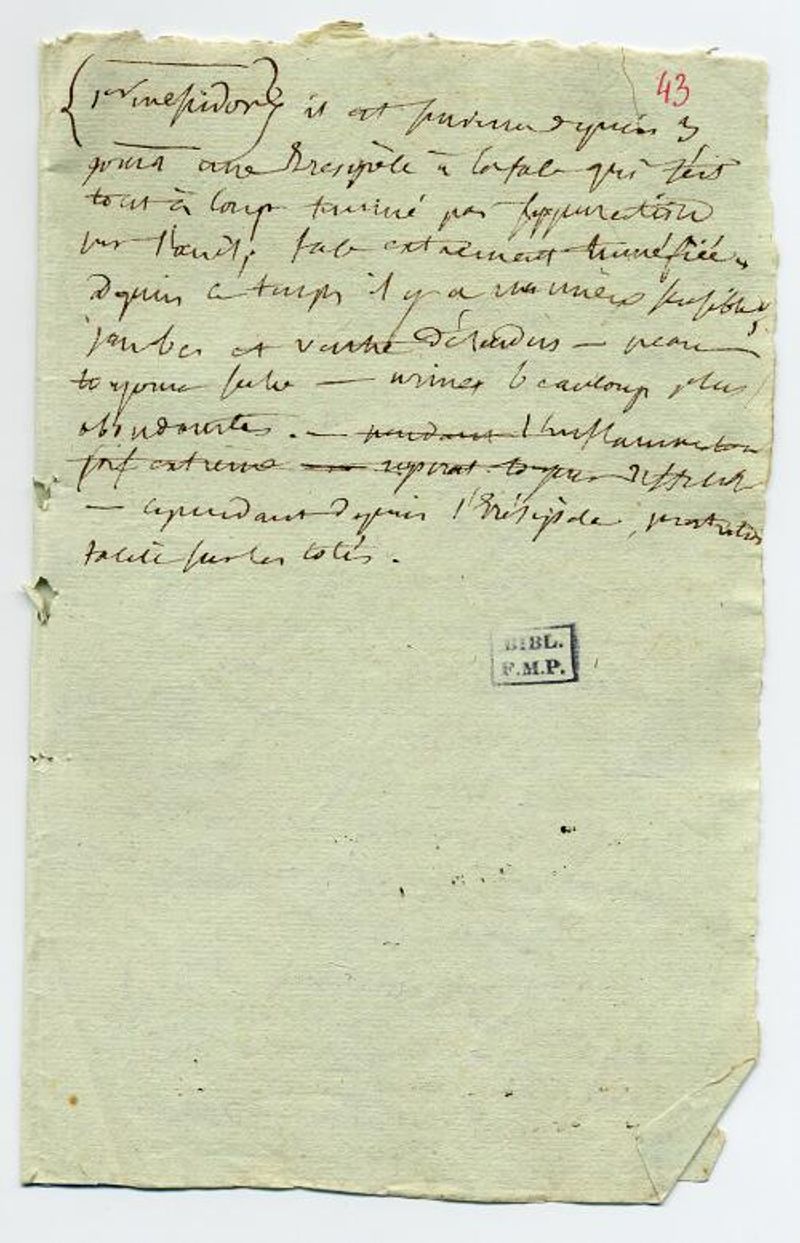 43
{1er messidor} il est survenu depuis 3
jours une Erésipèle à la face qui s'est
tout à coup terminé par suppuration
sur l'oeil, face extremement tuméfiée
depuis ce temps il y a
jambes et ventre détendus — peau
toujours seche — urines beaucoup plus
abondantes. — pendant l'inflammation
soif extreme — toujours difficile
— cependant depuis l'Erésipèle, prostration
facile sur les cotés.
BIBL.
F.M.P.